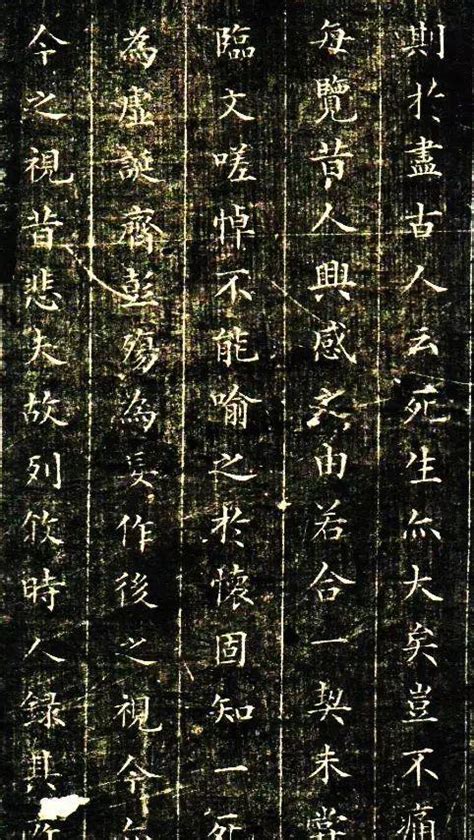 則於盡古人云死生亦大矣豈不痛
每覽昔人興感之由若合一契未嘗
臨文嗟悼不能喻之於懷固知一死
為虛誕齊彭殤為妄作後之視今
今之視昔悲夫故列敘時人錄其所